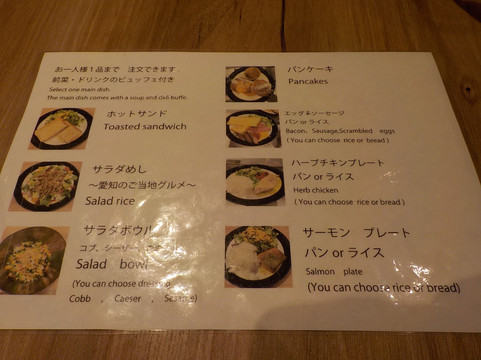 お一人様1品まで 注文できます
前菜・ドリンクのビュッフェ付き
Select one main dish.
The main dish comes with a soup and deli buffe.
ホットサンド
Toasted sandwich
サラダめし
～愛知のご当地グルメ～
Salad rice
サラダボウル
コブ、シーザー、
Salad bowl
(You can choose dressing
Cobb , Caeser , Sesame)
パンケーキ
Pancakes
エッグ&ソーセージ
パン or ライス
Bacon、Sausage,Scrambled eggs
( You can choose rice or bread )
ハーブチキンプレート
パン or ライス
Herb chicken
( You can choose rice or bread )
サーモン プレート
パン or ライス
Salmon plate
(You can choose rice or bread)